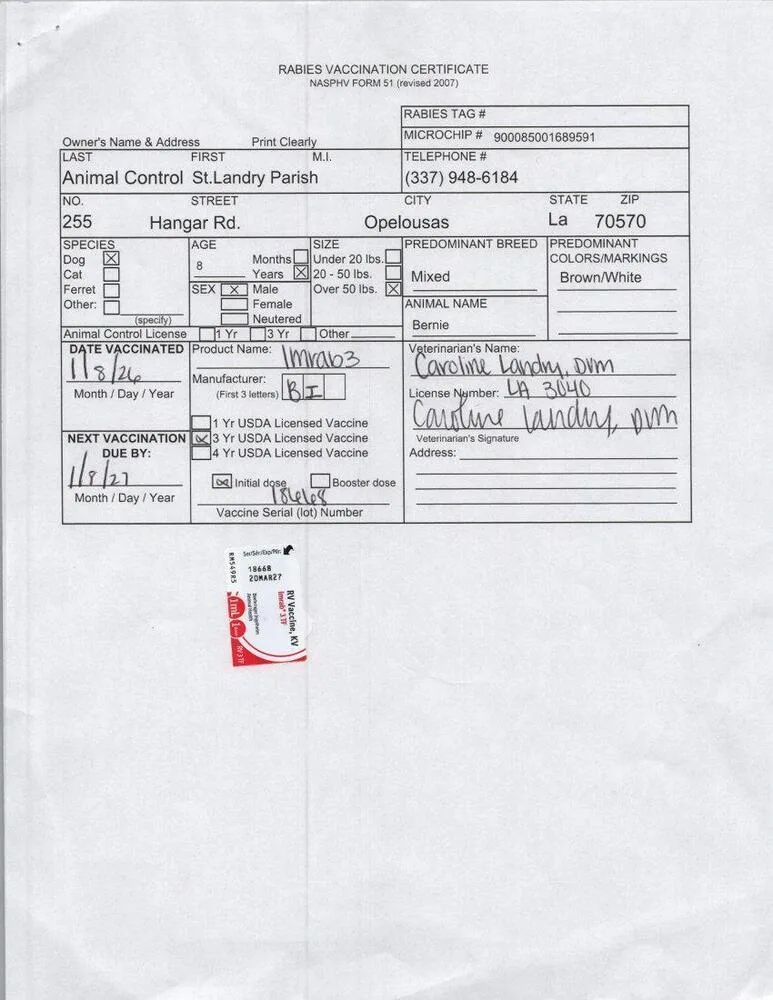 RABIES VACCINATION CERTIFICATE
NASPHV FORM 51 (revised 2007)
RABIES TAG #
MICROCHIP # 900085001689591
Owner's Name & Address Print Clearly
LAST FIRST M.I. TELEPHONE #
Animal Control St.Landry Parish (337) 948-6184
NO. STREET CITY STATE ZIP
255 Hangar Rd. Opelousas La 70570
SPECIES AGE SIZE PREDOMINANT BREED PREDOMINANT
COLORS/MARKINGS
Dog X 8 Months Under 20 lbs.
Cat Years X 20 - 50 lbs. Mixed Brown/White
Ferret SEX X Male Over 50 lbs. X
Other: Female ANIMAL NAME
(specify) Neutered Bernie
Animal Control License 1 Yr 3 Yr Other
DATE VACCINATED Product Name: Imrab3 Veterinarian's Name:
1/8/26 Caroline Landry, DVM
Month / Day / Year Manufacturer:
(First 3 letters) B I License Number: LA 3040
1 Yr USDA Licensed Vaccine Caroline Landry, DVM
NEXT VACCINATION X 3 Yr USDA Licensed Vaccine Veterinarian's Signature
DUE BY: 4 Yr USDA Licensed Vaccine Address:
1/8/27
Month / Day / Year X Initial dose Booster dose
18668
Vaccine Serial (lot) Number
Ser/Sér/Exp/Pér:
18668
20MAR27
RM549R5
RV Vaccine, KV
Imrab® 3 TF
Boehringer Ingelheim
Animal Health
1mL
RV 3 TF